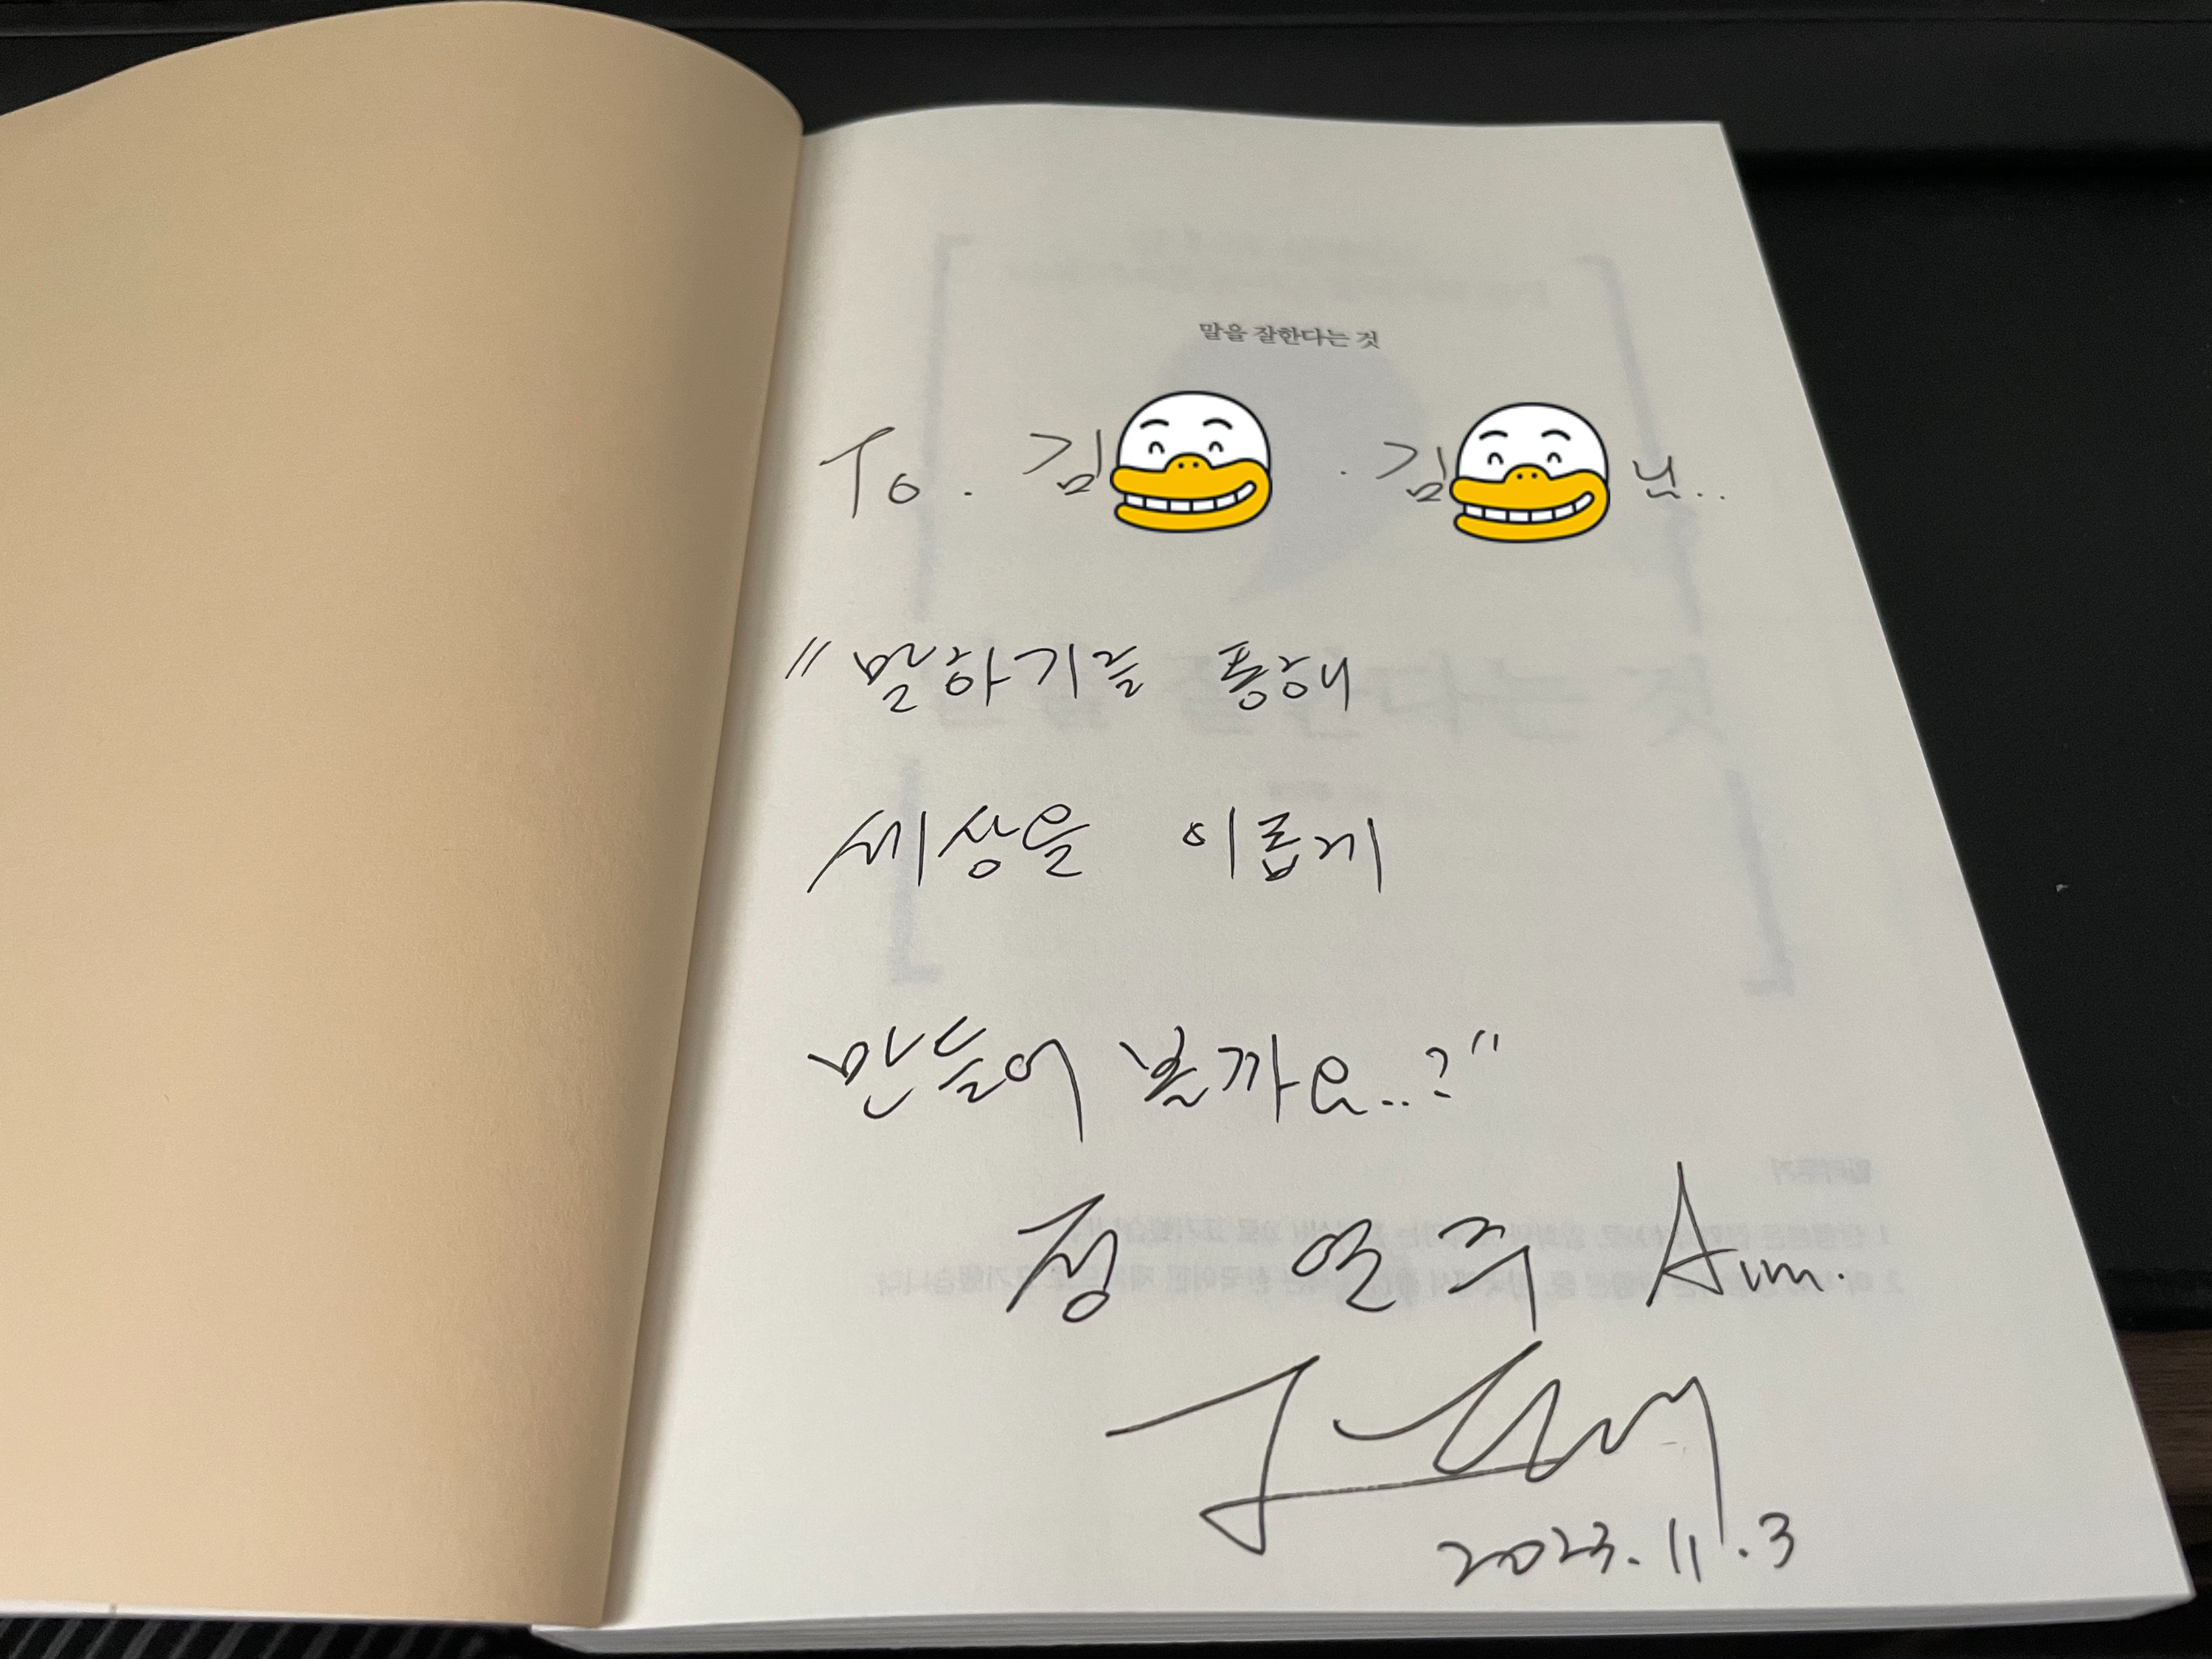 말을 잘한다는 것
To. 김 · 김 님..
"말하기를 통해
세상을 이롭게
만들어 볼까요..?"
정 연주 Aim.
2023. 11. 3